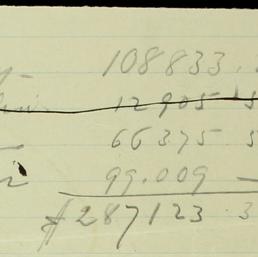 108833.
12905 5
66375 5
99.009 —
$287123.3